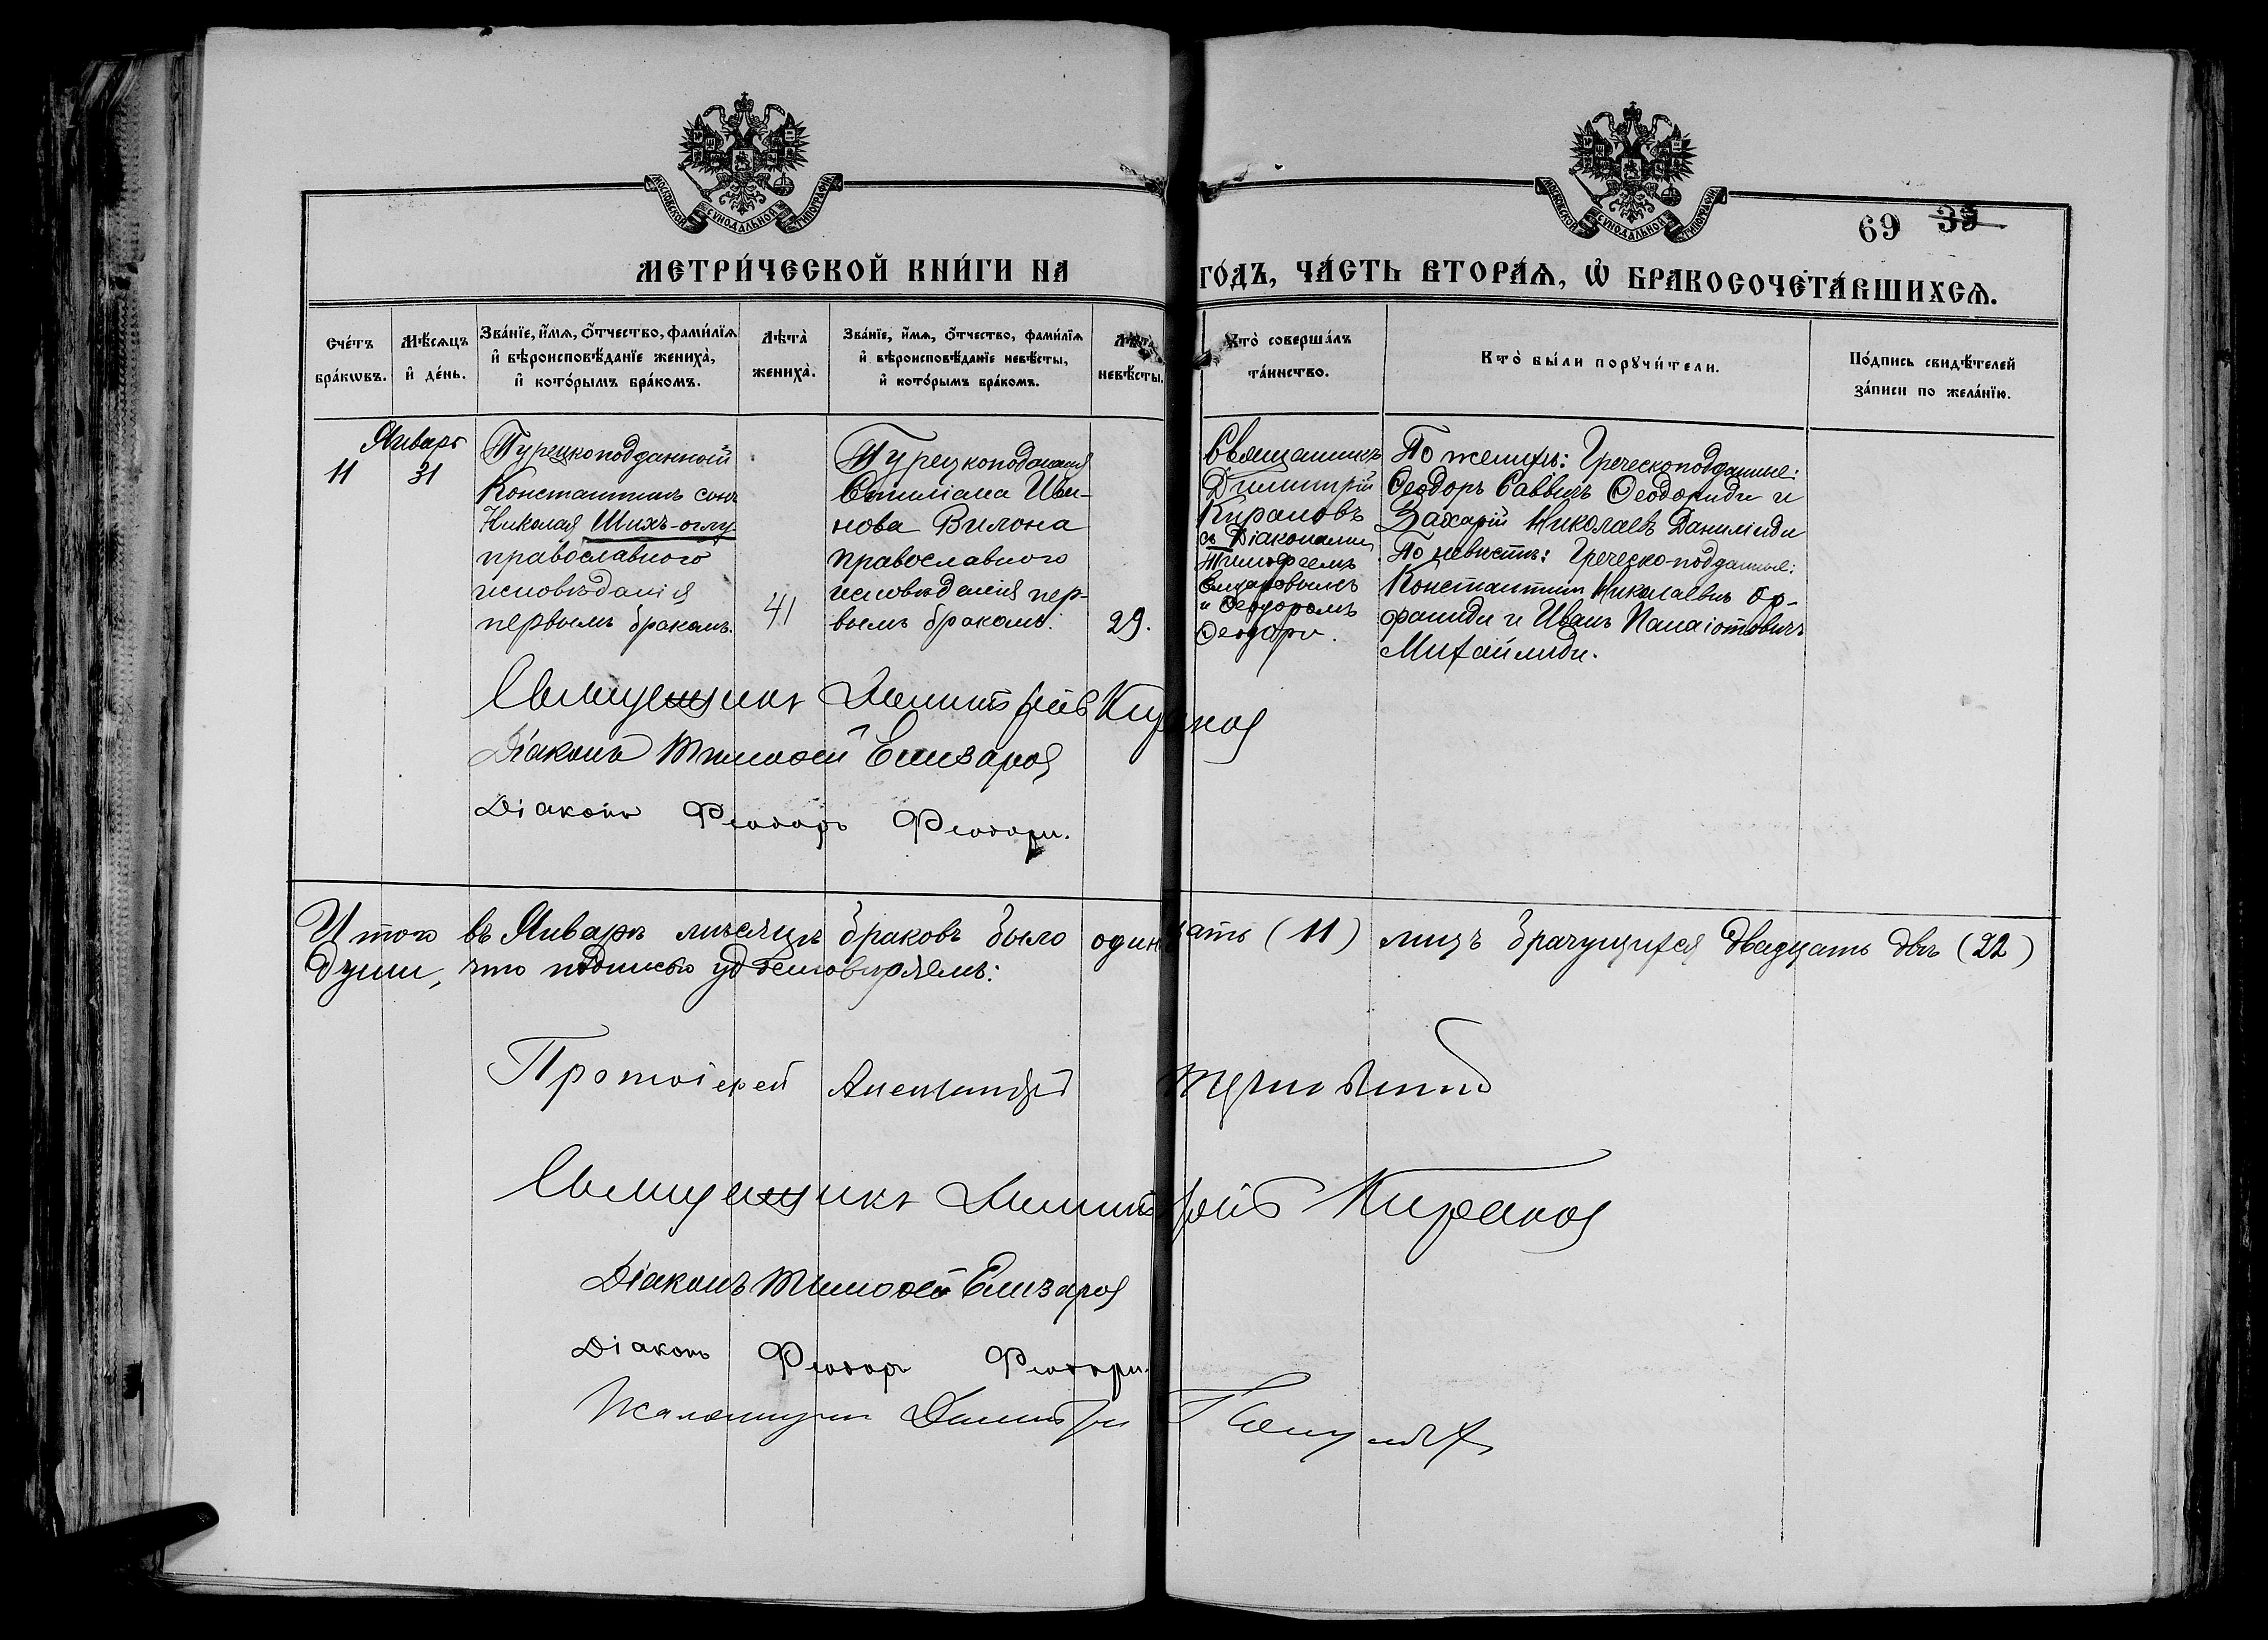 МОСКОВСКОЙ СѴНОДАЛЬНОЙ ТИПОГРАФІИ
МОСКОВСКОЙ СѴНОДАЛЬНОЙ ТИПОГРАФІИ
69 39
МЕТРИ́ЧЕСКОЙ КНИ́ГИ НА ГО́ДЪ, ЧА́СТЬ ВТОРА́Ѧ, Ѡ҆ БРАКОСОЧЕТА́ВШИХСѦ.
Сче́тъ
бра́кѡвъ.
Мѣ́сѧцъ
и҆ де́нь.
Зва́нїе, и҆́мѧ, ѻ҆́тчество, фами́лїѧ
и҆ вѣроисповѣ́данїе жениха̀,
и҆ кото́рымъ бра́комъ.
Лѣта̀
жениха̀.
Зва́нїе, и҆́мѧ, ѻ҆́тчество, фами́лїѧ
и҆ вѣроисповѣ́данїе невѣ́сты,
и҆ кото́рымъ бра́комъ.
Лѣта̀
невѣ́сты.
Кто̀ соверша́лъ
та́инство.
Кто̀ бы́ли порꙋчи́тели.
По́дпись свидѣ́телей
за́писи по жела́нїю.
Январь
11
31
Турецкоподданный
Константинъ сынъ
Николая Шихъ-оглу
православнаго
исповѣданія
первымъ бракомъ.
41
Турецкоподданная
Стиліана Ива-
нова Вилона
православнаго
исповѣданія пер-
вымъ бракомъ.
29.
Священникъ
Димитрій
Кираковъ
съ Діаконами
Тимофеемъ
Елизаровымъ
и Ѳеодоромъ
Ѳеодори.
По женихѣ: Греческоподданные:
Ѳеодоръ Саввичъ Ѳеодориди и
Захарій Николаевъ Данилиди
По невѣстѣ: Греческо-подданные:
Константинъ Николаевичъ Ор-
фаниди и Иванъ Панаіотовичъ
Михаилиди.
Священникъ Димитрій Кираков
Діаконъ Тимофей Елизаров
Діаконъ Феодоръ Феодори.
Итого въ Январѣ мѣсяцѣ браковъ было одинадцать (11) лицъ брачущихся двадцать двѣ (22)
души, что подписью удостовѣряемъ:
Протоіерей Александръ
Священникъ Димитрій Кираков
Діаконъ Тимофей Елизаров
Діаконъ Феодоръ Феодори.
Псаломщикъ Димитрій